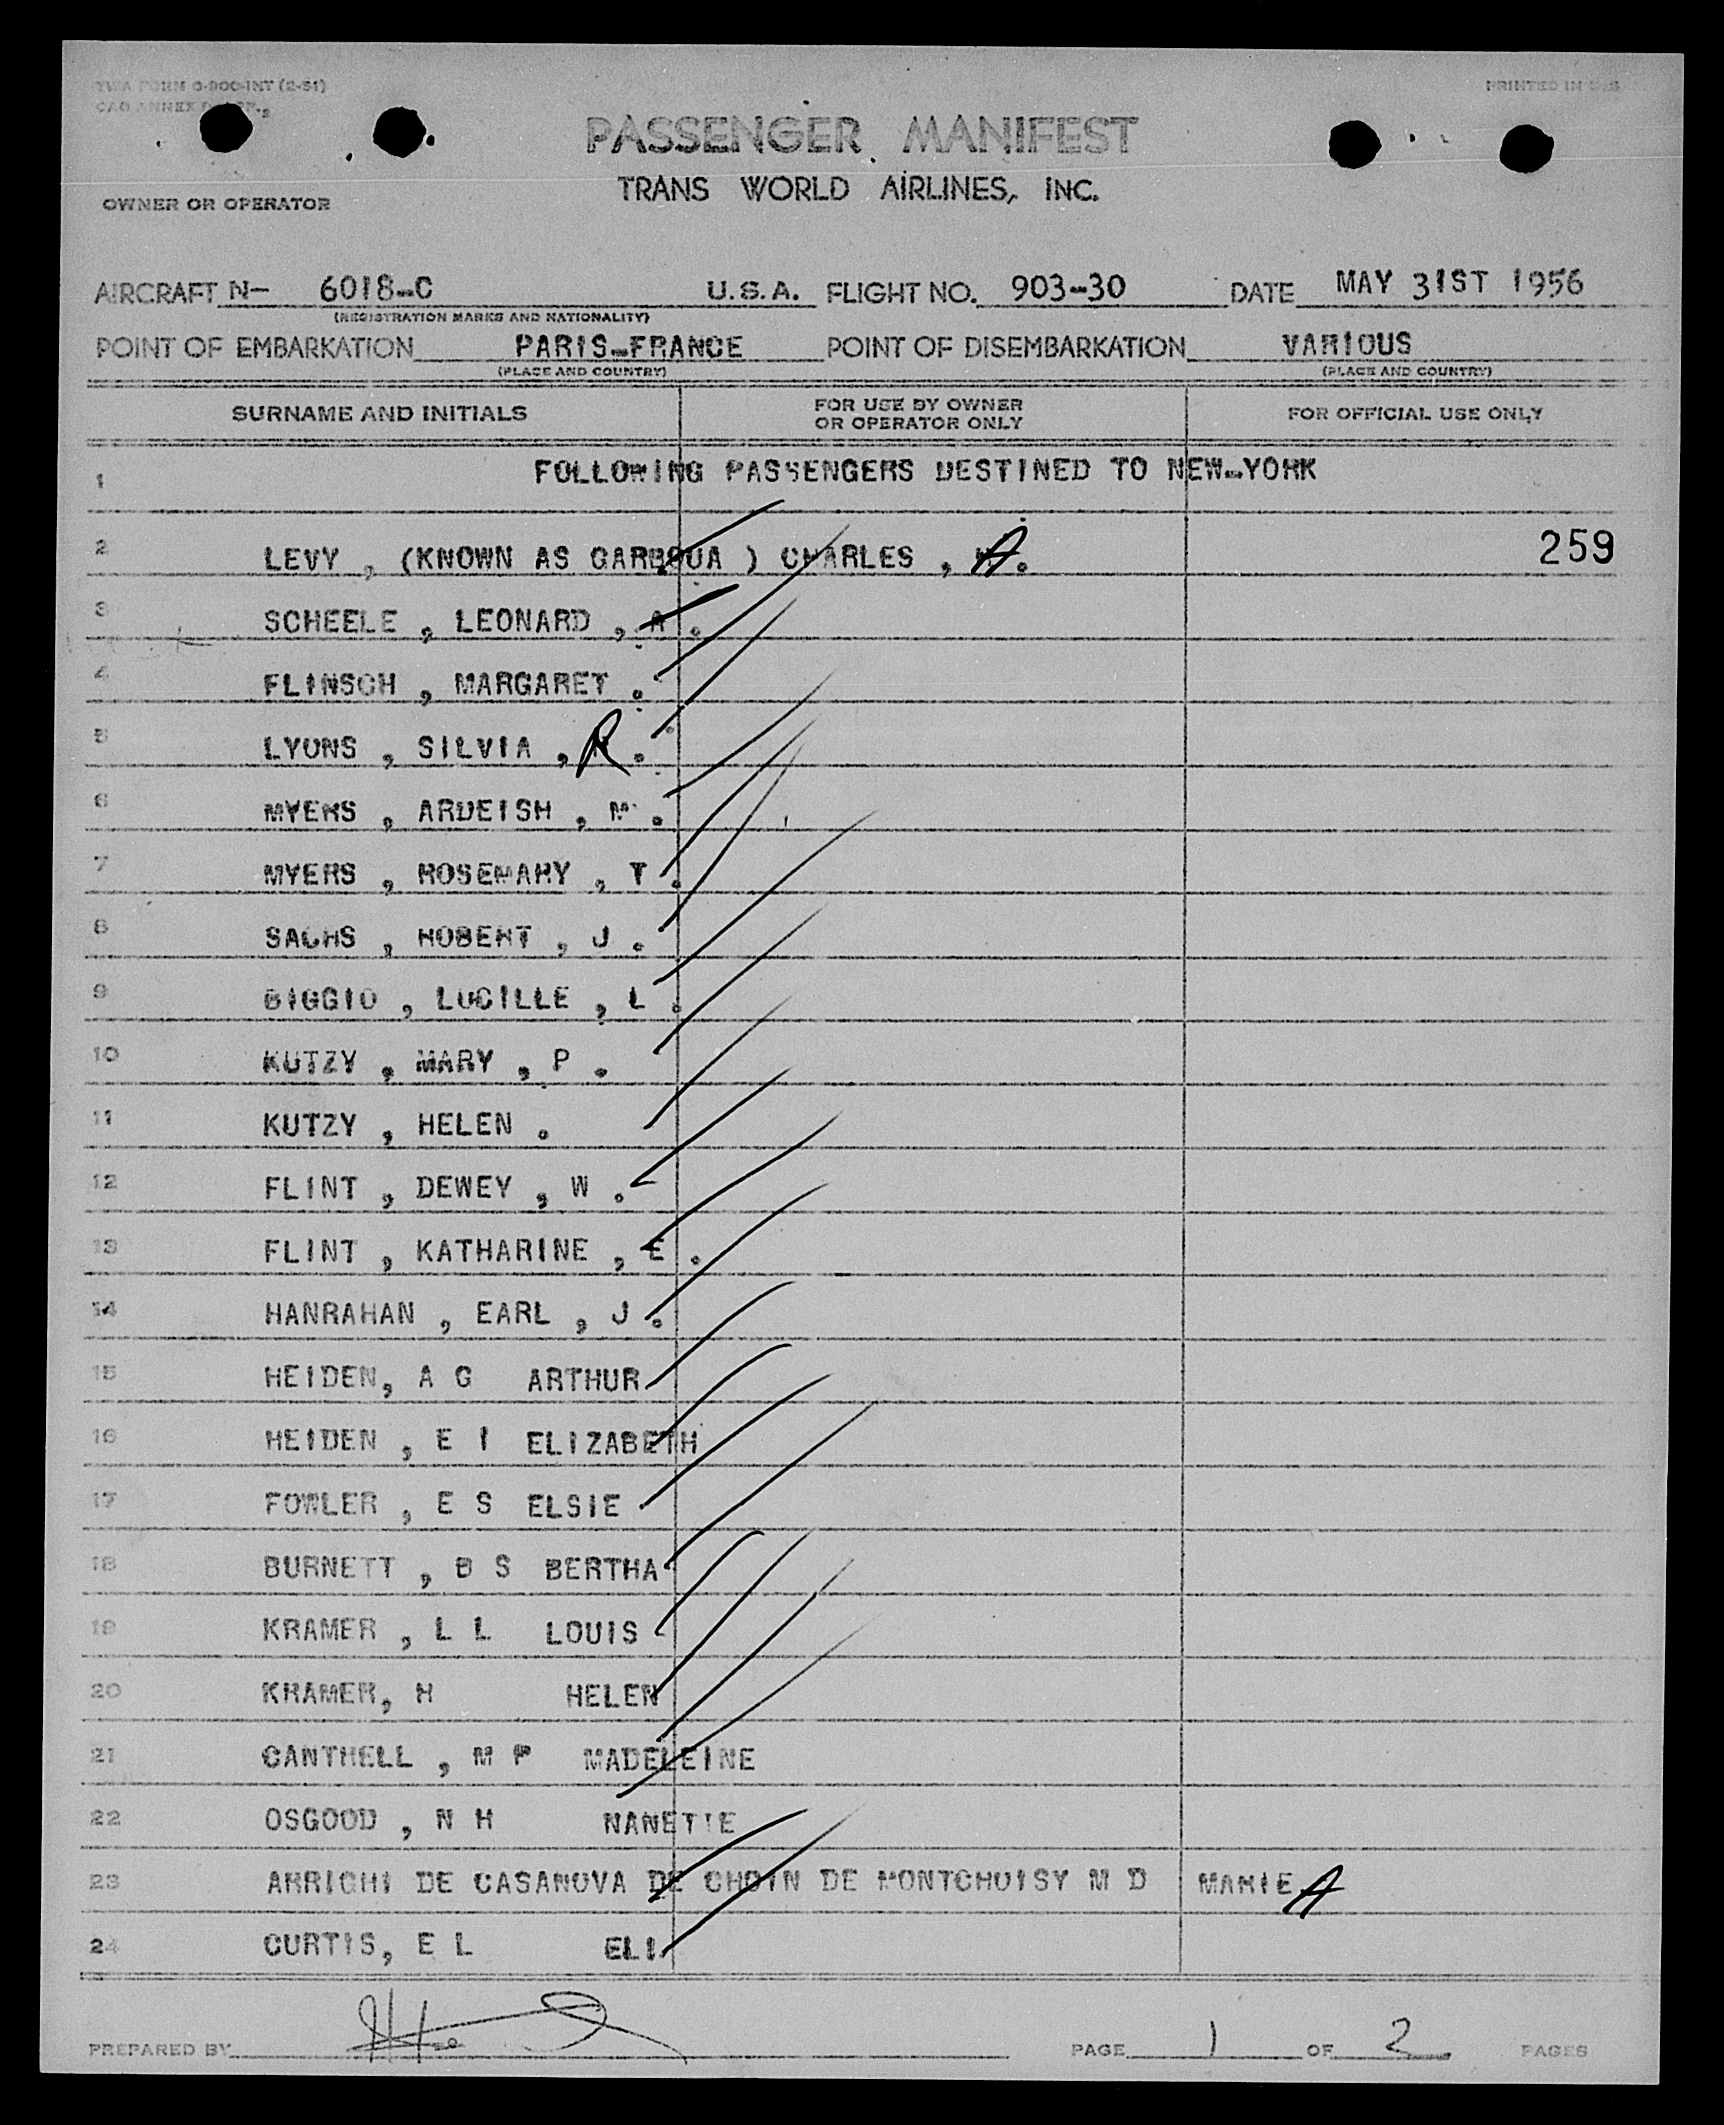 TWA FORM O-900-INT (2-51) PRINTED IN U.S.
CAO ANNEX
PASSENGER MANIFEST
TRANS WORLD AIRLINES, INC.
OWNER OR OPERATOR
AIRCRAFT N- 6018-C U.S.A. FLIGHT NO. 903-30 DATE MAY 31ST 1956
(REGISTRATION MARKS AND NATIONALITY)
POINT OF EMBARKATION PARIS-FRANCE POINT OF DISEMBARKATION VARIOUS
(PLACE AND COUNTRY) (PLACE AND COUNTRY)
SURNAME AND INITIALS FOR USE BY OWNER OR OPERATOR ONLY FOR OFFICIAL USE ONLY
1 FOLLOWING PASSENGERS DESTINED TO NEW-YORK
2 LEVY , (KNOWN AS GARBOUA ) CHARLES , A. 259
3 SCHEELE , LEONARD , A .
4 FLINSCH , MARGARET .
5 LYONS , SILVIA , R .
6 MYERS , ARDEISH , M .
7 MYERS , ROSEMARY , T .
8 SACHS , ROBERT , J .
9 BIGGIO , LUCILLE , L .
10 KUTZY , MARY , P .
11 KUTZY , HELEN .
12 FLINT , DEWEY , W .
13 FLINT , KATHARINE , E .
14 HANRAHAN , EARL , J .
15 HEIDEN, A G ARTHUR
16 HEIDEN , E I ELIZABETH
17 FOWLER , E S ELSIE
18 BURNETT , B S BERTHA
19 KRAMER , L L LOUIS
20 KRAMER, H HELEN
21 CANTRELL , M P MADELEINE
22 OSGOOD , N H NANETTE
23 ARRIGHI DE CASANOVA DE CHOIN DE MONTCHOISY M D MARIE A
24 CURTIS, E L ELI
PREPARED BY PAGE 1 OF 2 PAGES